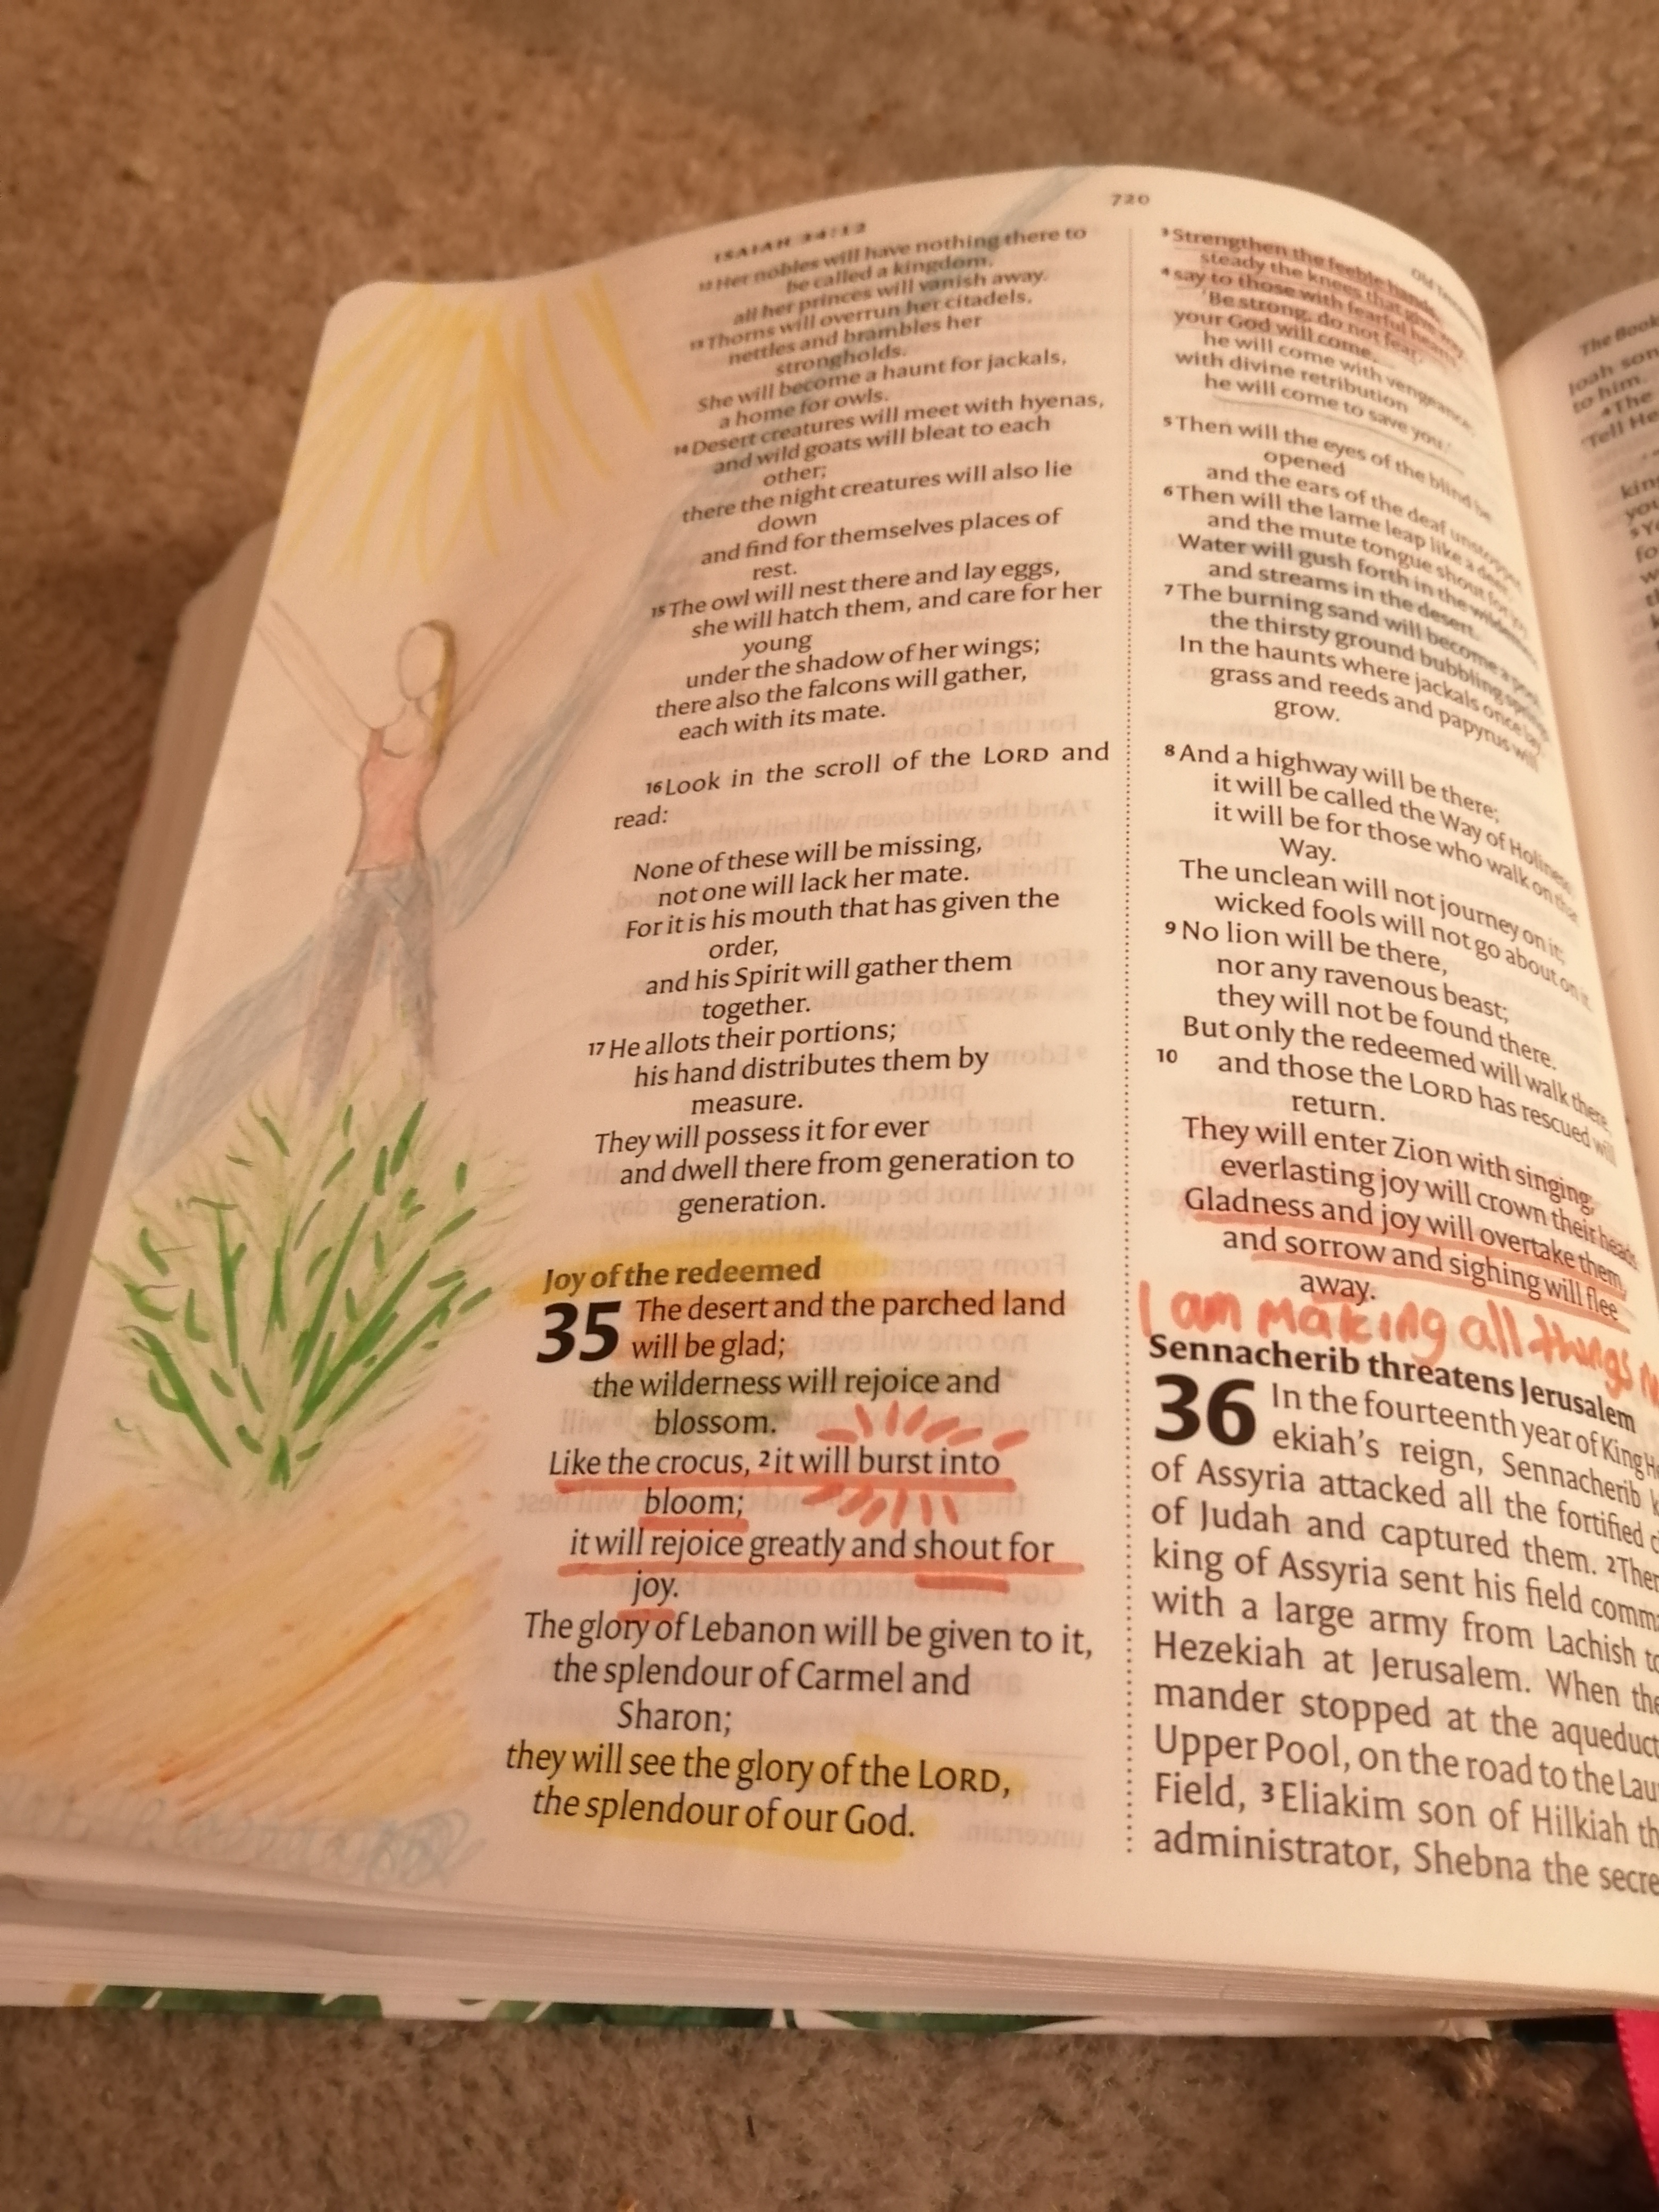 ISAIAH 34:12
720
12 Her nobles will have nothing there to
be called a kingdom,
all her princes will vanish away.
13 Thorns will overrun her citadels,
nettles and brambles her
strongholds.
She will become a haunt for jackals,
a home for owls.
14 Desert creatures will meet with hyenas,
and wild goats will bleat to each
other;
there the night creatures will also lie
down
and find for themselves places of
rest.
15 The owl will nest there and lay eggs,
she will hatch them, and care for her
young
under the shadow of her wings;
there also the falcons will gather,
each with its mate.
16 Look in the scroll of the LORD and
read:
None of these will be missing,
not one will lack her mate.
For it is his mouth that has given the
order,
and his Spirit will gather them
together.
17 He allots their portions;
his hand distributes them by
measure.
They will possess it for ever
and dwell there from generation to
generation.
Joy of the redeemed
35 The desert and the parched land
will be glad;
the wilderness will rejoice and
blossom.
Like the crocus, 2 it will burst into
bloom;
it will rejoice greatly and shout for
joy.
The glory of Lebanon will be given to it,
the splendour of Carmel and
Sharon;
they will see the glory of the LORD,
the splendour of our God.
3 Strengthen the feeble hands,
steady the knees that give way;
4 say to those with fearful hearts,
'Be strong, do not fear;
your God will come,
he will come with vengeance;
with divine retribution
he will come to save you.'
5 Then will the eyes of the blind be
opened
and the ears of the deaf unstopped.
6 Then will the lame leap like a deer,
and the mute tongue shout for joy.
Water will gush forth in the wilderness
and streams in the desert.
7 The burning sand will become a pool,
the thirsty ground bubbling springs.
In the haunts where jackals once lay,
grass and reeds and papyrus will
grow.
8 And a highway will be there;
it will be called the Way of Holiness;
it will be for those who walk on that
Way.
The unclean will not journey on it;
wicked fools will not go about on it.
9 No lion will be there,
nor any ravenous beast;
they will not be found there.
But only the redeemed will walk there,
10 and those the LORD has rescued will
return.
They will enter Zion with singing;
everlasting joy will crown their heads.
Gladness and joy will overtake them,
and sorrow and sighing will flee
away.
I am making all things
Sennacherib threatens Jerusalem
36 In the fourteenth year of King
ekiah's reign, Sennacherib
of Assyria attacked all the fortified
of Judah and captured them. 2
king of Assyria sent his field
with a large army from Lachish
Hezekiah at Jerusalem. When
mander stopped at the aqueduct
Upper Pool, on the road to the
Field, 3 Eliakim son of Hilkiah
administrator, Shebna the
The Book
Joah son
to him.
4 The
'Tell